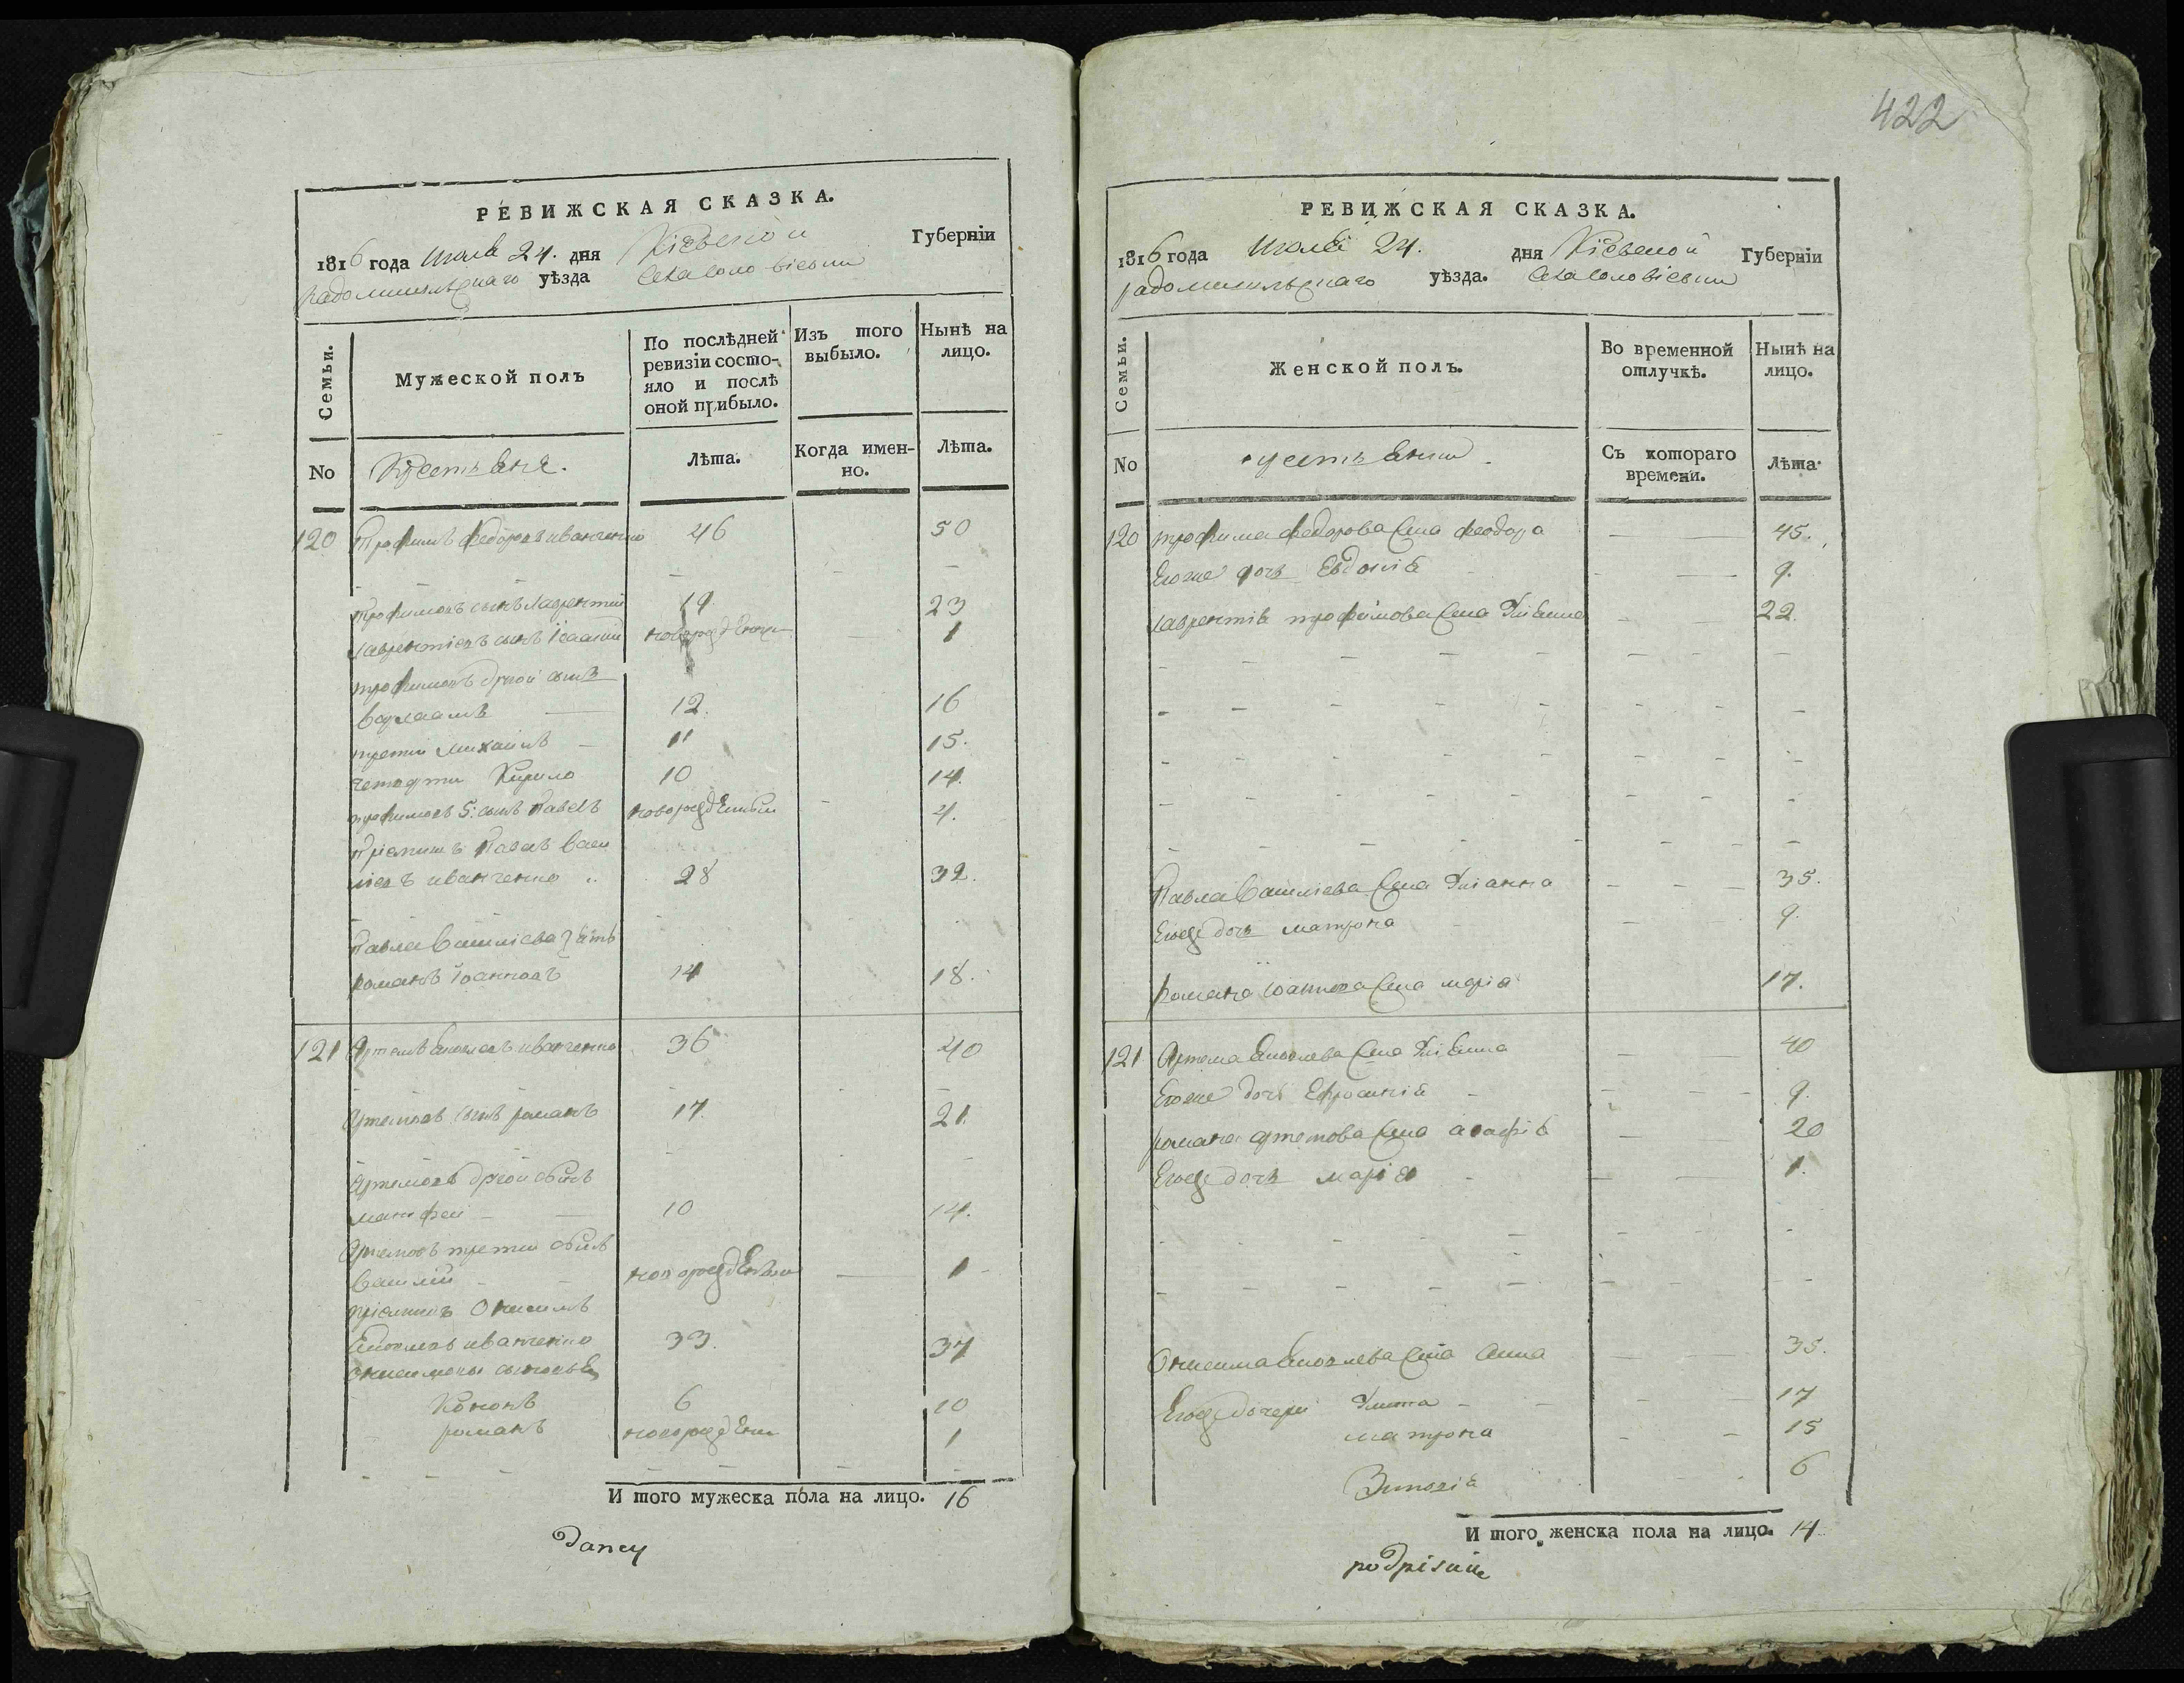 РЕВИЖСКАЯ СКАЗКА.
1816 года июля 24. дня Кіевской Губерніи
радомисльскаго уѣзда
Семьи.
Мужеской полъ
По послѣдней ревизіи состояло и послѣ оной прибыло.
Изъ того выбыло.
Нынѣ на лицо.
No
Крестьяне.
Лѣта.
Когда именно.
Лѣта.
120 Трофимъ федоровъ иванченко 46 50
трофимовъ сынъ Лаврентий 19 23
лаврентіевъ сынъ новорожденны 1
трофимовъ другой сынъ
варлаамъ 12. 16
трети Михаилъ 11 15.
четверти Кирило 10 14.
трофимовъ 5: сынъ Павелъ новорожденный 4.
Пріемишъ Павелъ васи
ліевъ иванченко 28 32.
Павла Василіева зять
романъ іоанновъ 14 18.
121 Артемъ яковлевъ иванченко 36 40
Артемовъ сынъ романъ 17. 21.
Артемовъ другой сынъ
матфей 10 14.
Артемовъ трети сынъ
василій новорожденый 1
Онисимъ
яковлевъ иванченко 33. 37
онисимовы сыновья
Кононъ 6 10
романъ новорожден 1
И того мужеска пола на лицо. 16
422
РЕВИЖСКАЯ СКАЗКА.
1816 года июля 24. дня Кіевской Губерніи
радомисльскаго уѣзда.
Семьи.
Женской полъ.
Во временной отлучкѣ.
Нынѣ на лицо.
No
Съ котораго времени.
Лѣта
120 трофима федорова жена феодора 45.
Егоже дочь Евдокія 9.
лаврентія трофимова жена 22.
Павла Василіева жена Уліанна 35.
Егожъ дочь матрона 9.
Романа іоаннова жена марія 17.
121 Артема яковлева жена Уліянна 40
Егоже дочь Ефросинія 9.
романа артемова жена агафія 20
Егожъ дочь марія 1.
Онисима яковлева жена анна 35.
Егожъ дочери 17
матрона 15
Зиновія 6
И того женска пола на лицо. 14
podpisuie